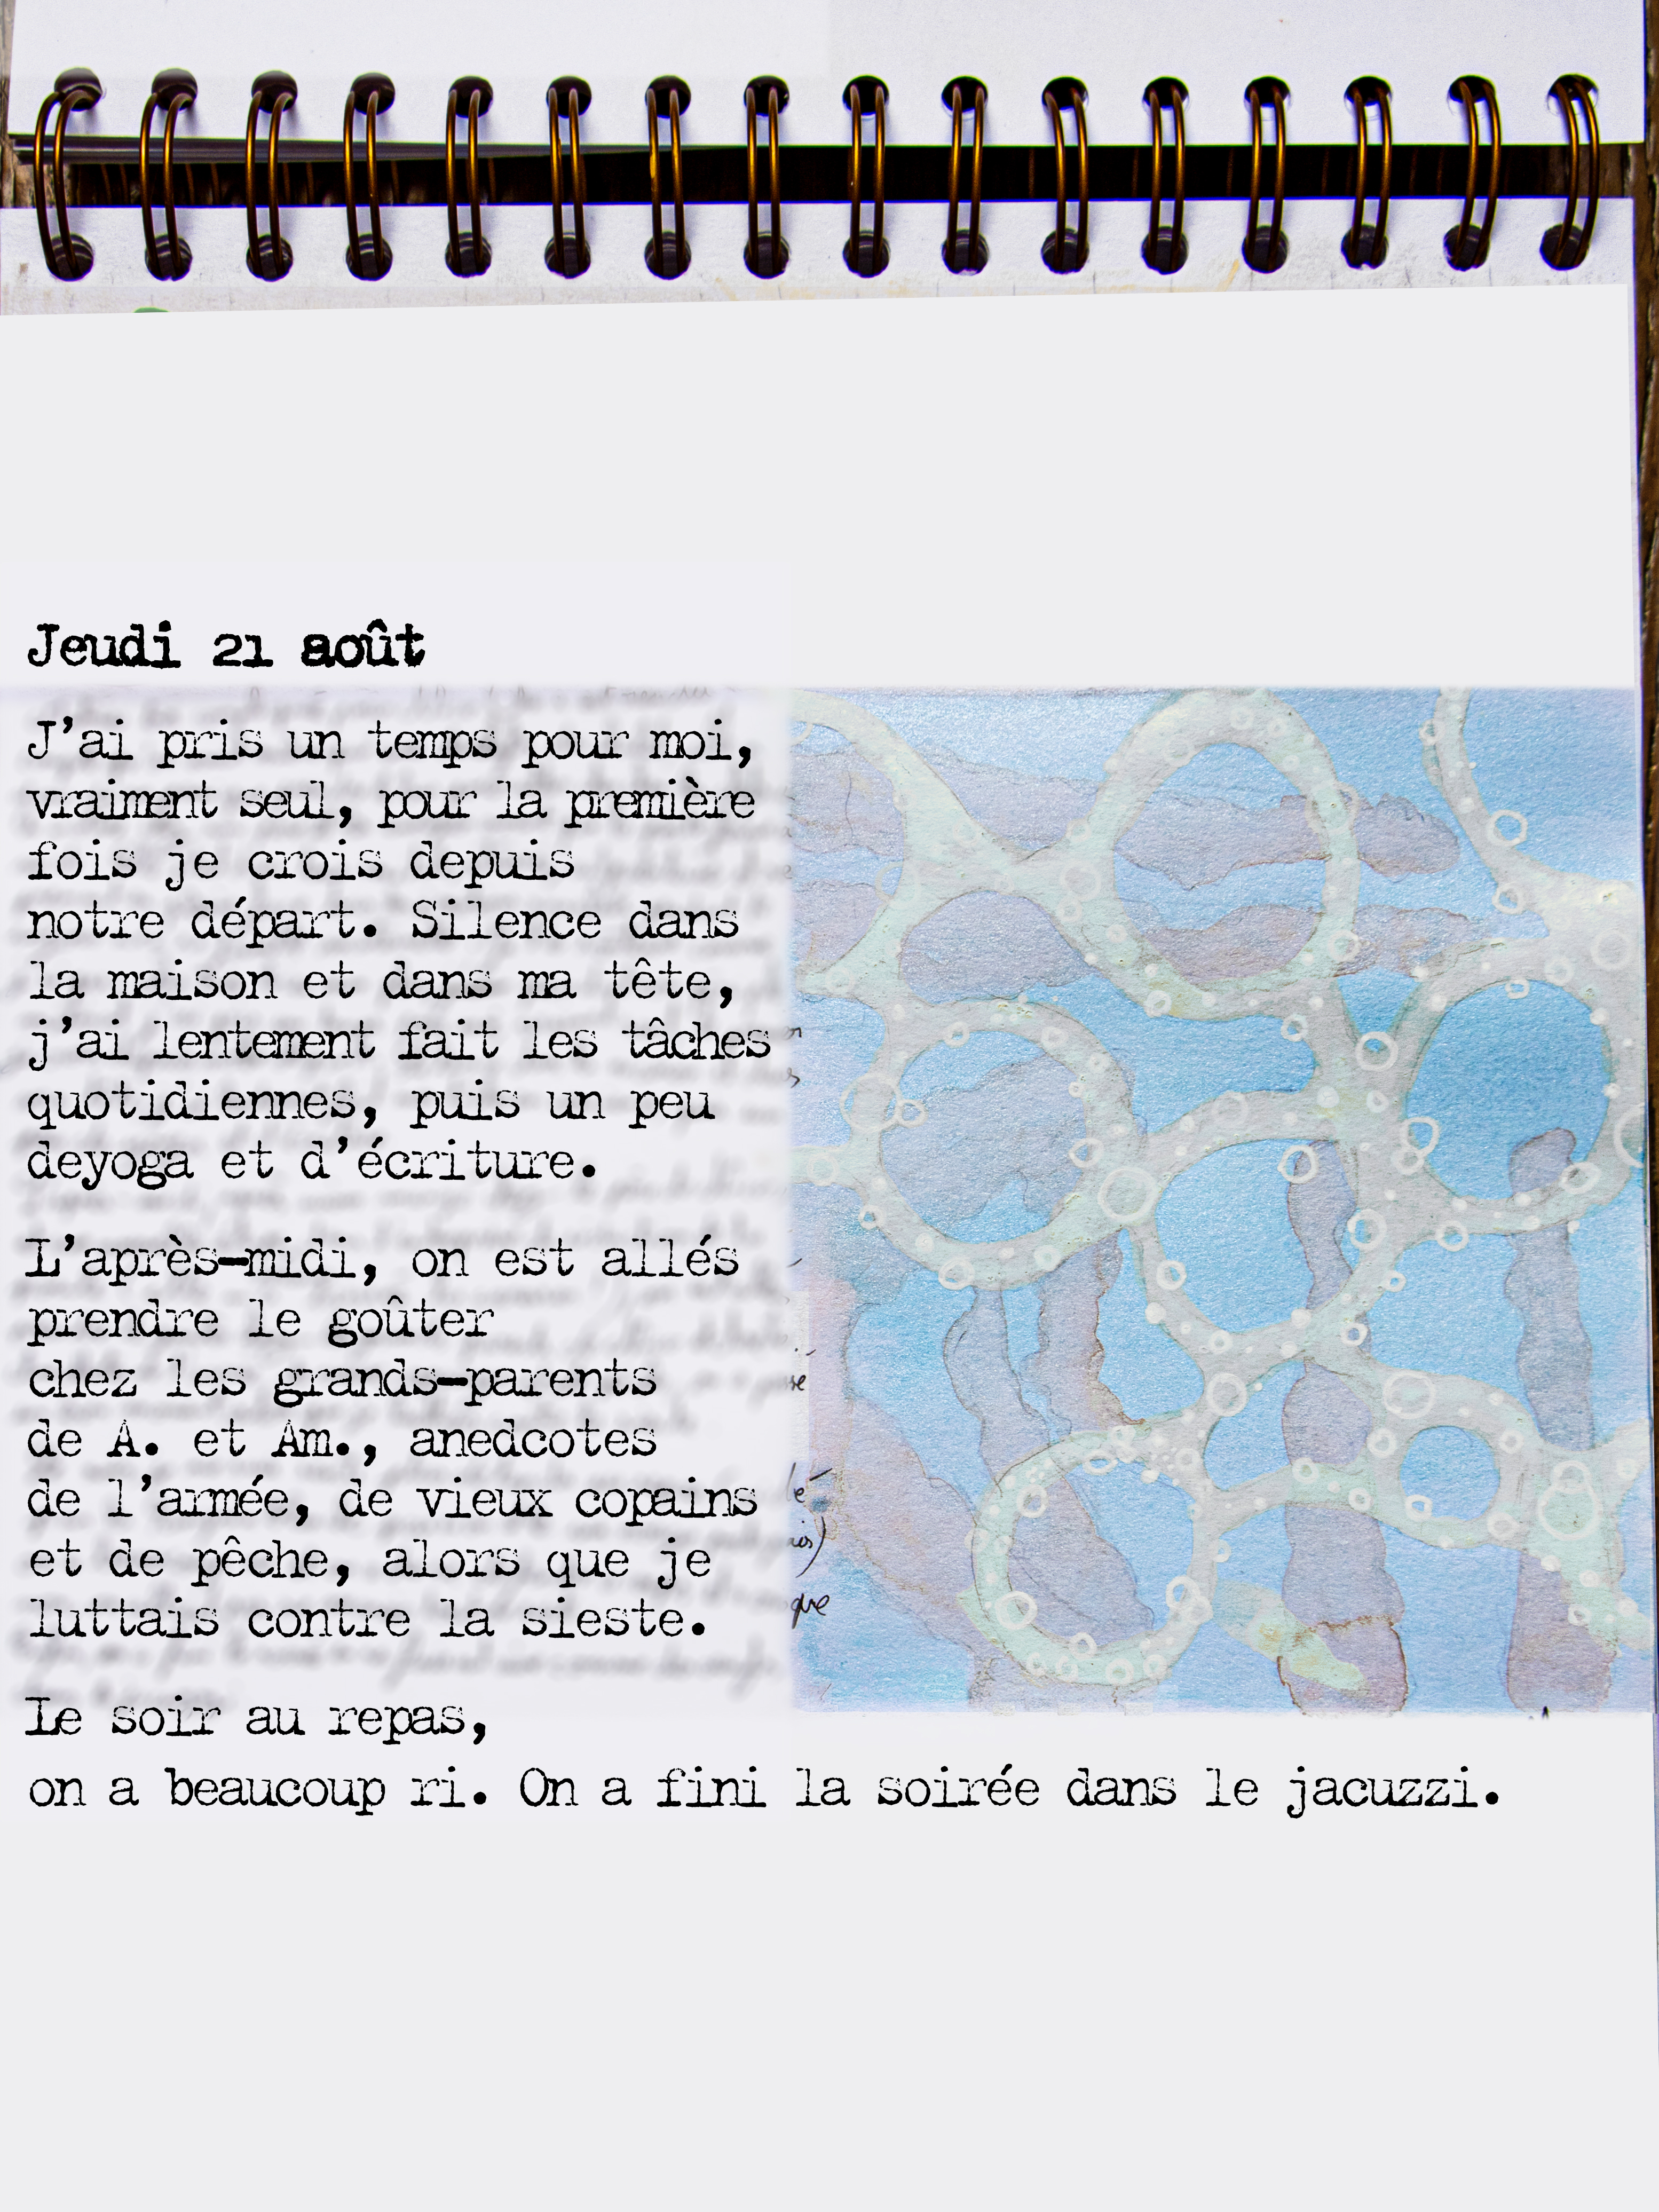 Jeudi 21 août
J'ai pris un temps pour moi,
vraiment seul, pour la première
fois je crois depuis
notre départ. Silence dans
la maison et dans ma tête,
j'ai lentement fait les tâches
quotidiennes, puis un peu
deyoga et d'écriture.
L'après-midi, on est allés
prendre le goûter
chez les grands-parents
de A. et Am., anedcotes
de l'armée, de vieux copains
et de pêche, alors que je
luttais contre la sieste.
que
Le soir au repas,
on a beaucoup ri. On a fini la soirée dans le jacuzzi.